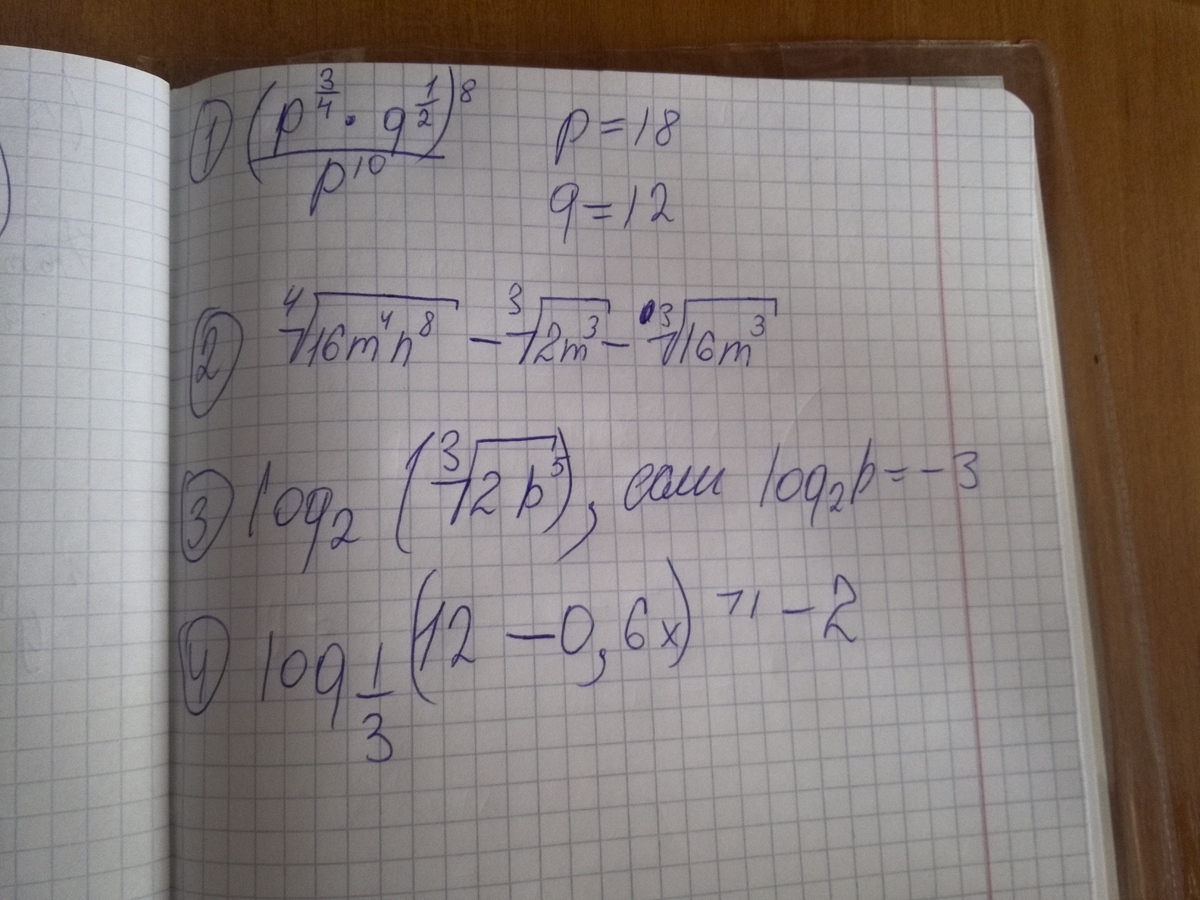 ① (p^(3/4) · q^(1/2))^8 / p^10 p=18
q=12
② ⁴√(16m⁴n⁸) - ³√(2m³) - ³√(16m³)
③ log₂ (³√(2p⁵)), если log₂p=-3
④ log_(1/3) (12-0,6x) -2